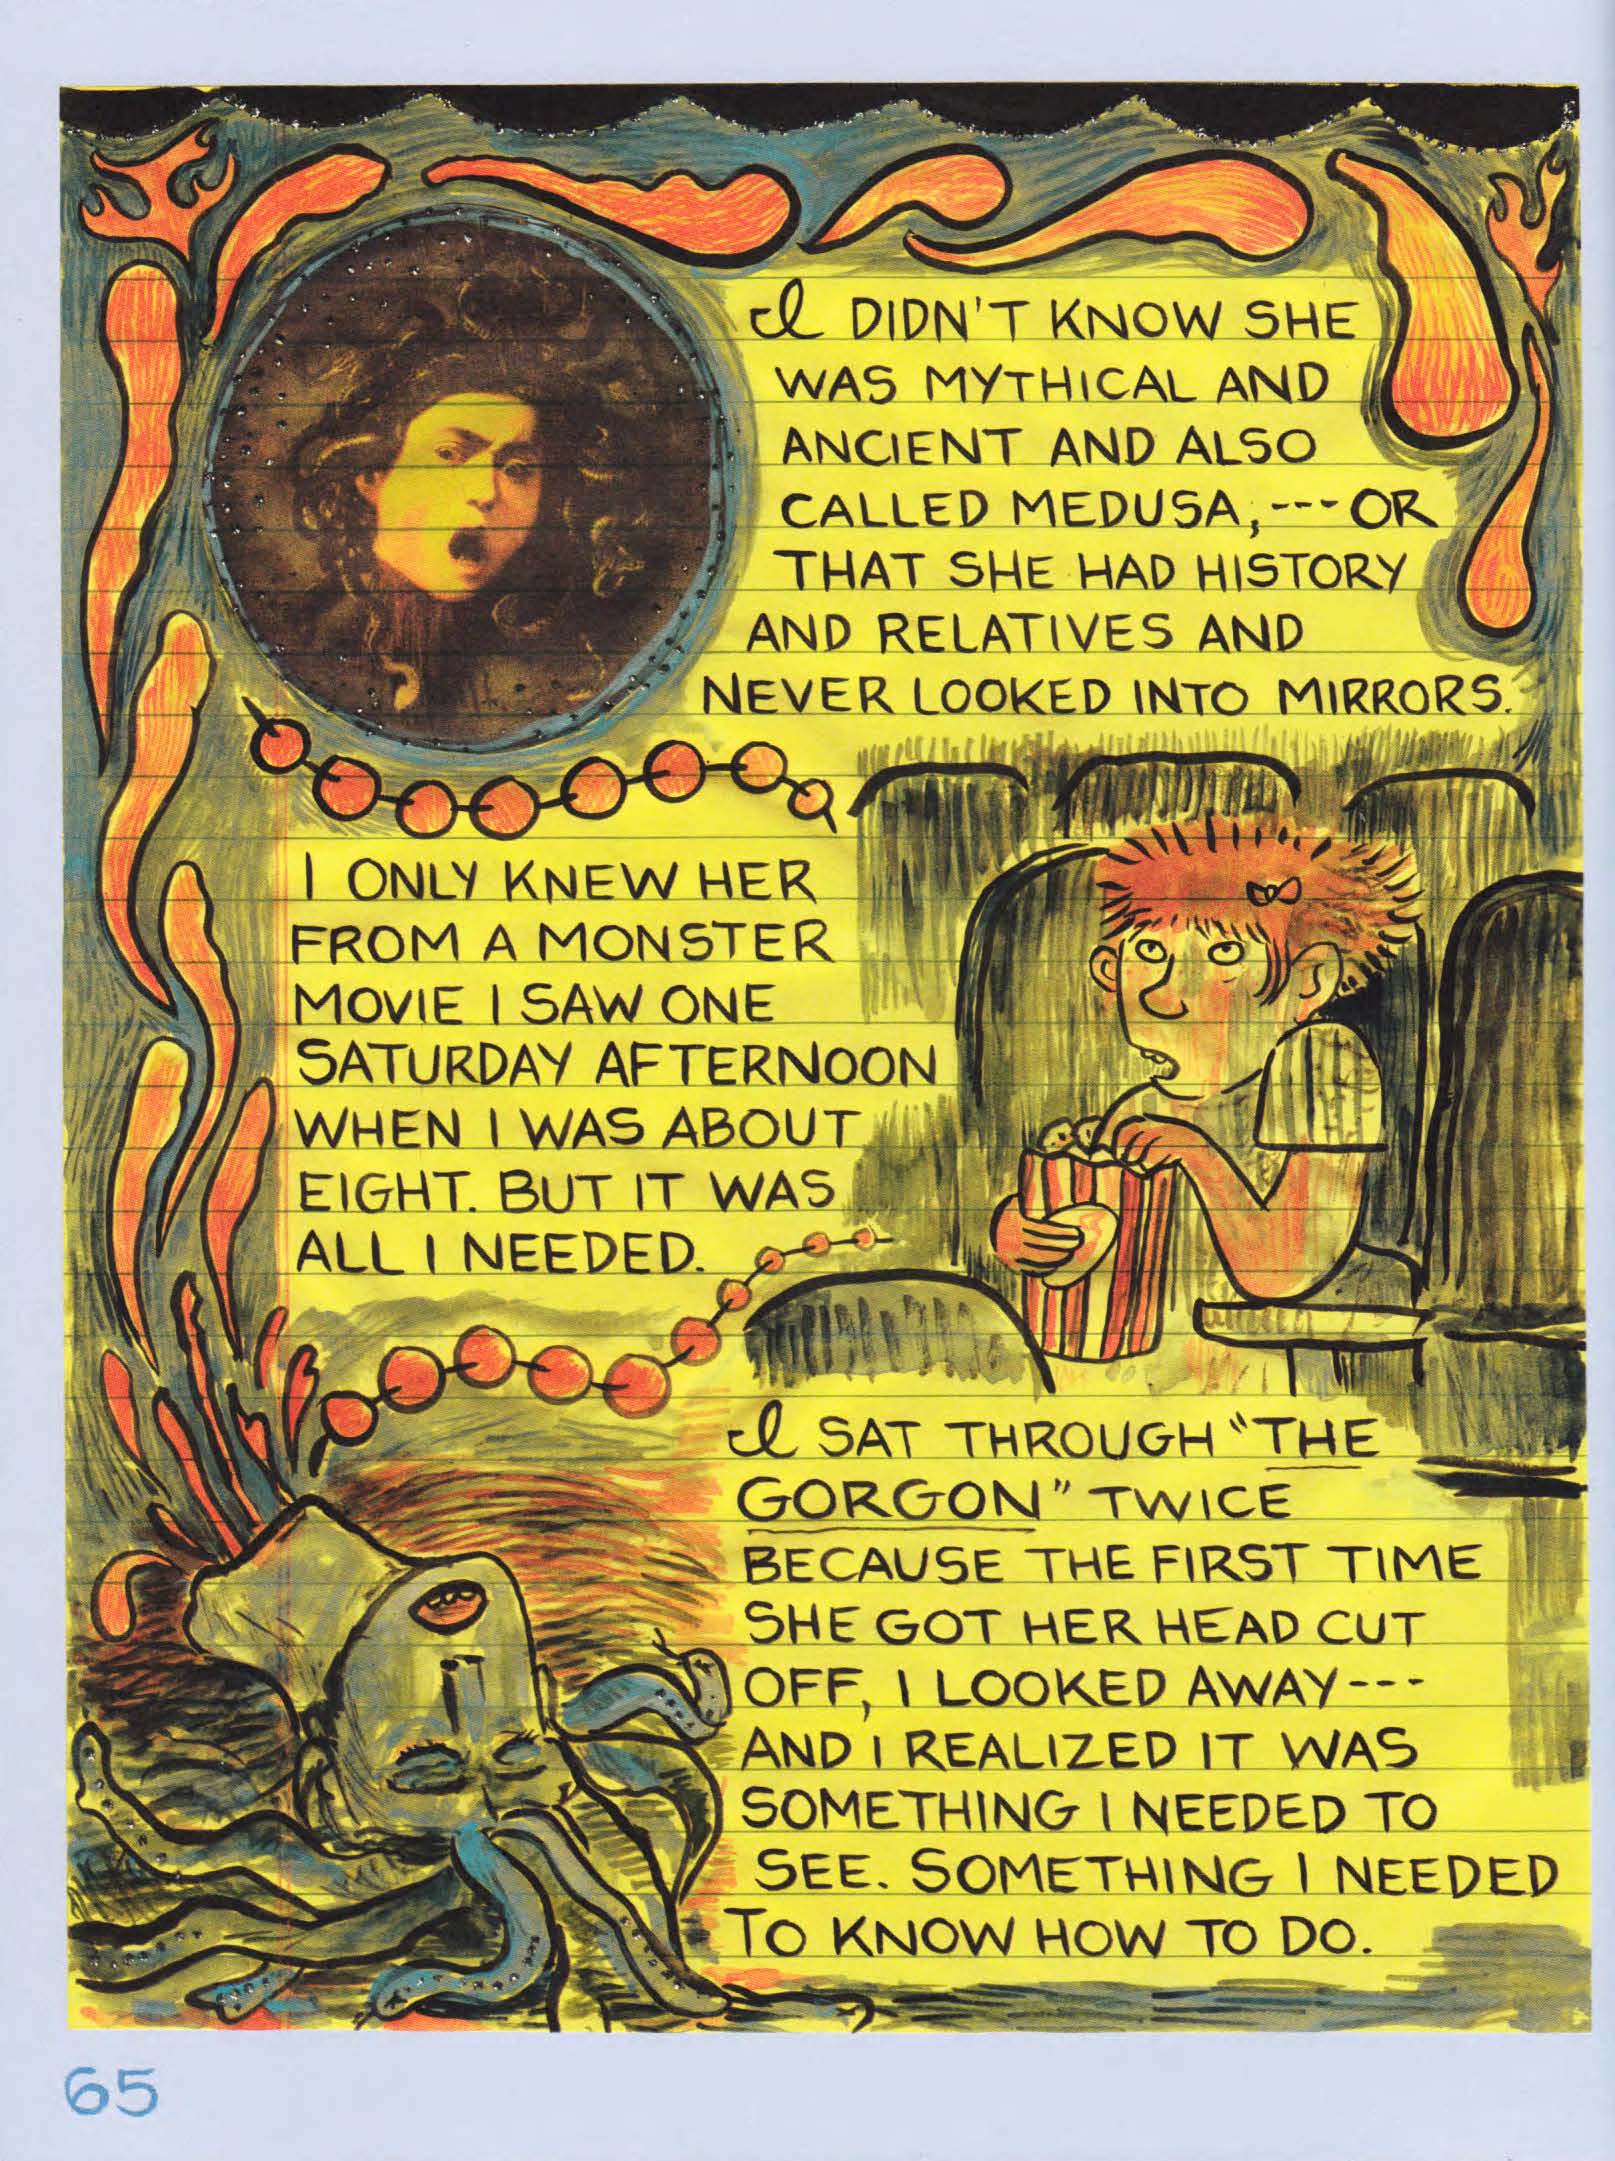 I DIDN'T KNOW SHE
WAS MYTHICAL AND
ANCIENT AND ALSO
CALLED MEDUSA, --- OR
THAT SHE HAD HISTORY
AND RELATIVES AND
NEVER LOOKED INTO MIRRORS.
I ONLY KNEW HER
FROM A MONSTER
MOVIE I SAW ONE
SATURDAY AFTERNOON
WHEN I WAS ABOUT
EIGHT. BUT IT WAS
ALL I NEEDED.
I SAT THROUGH "THE
GORGON" TWICE
BECAUSE THE FIRST TIME
SHE GOT HER HEAD CUT
OFF, I LOOKED AWAY---
AND I REALIZED IT WAS
SOMETHING I NEEDED TO
SEE. SOMETHING I NEEDED
TO KNOW HOW TO DO.
65